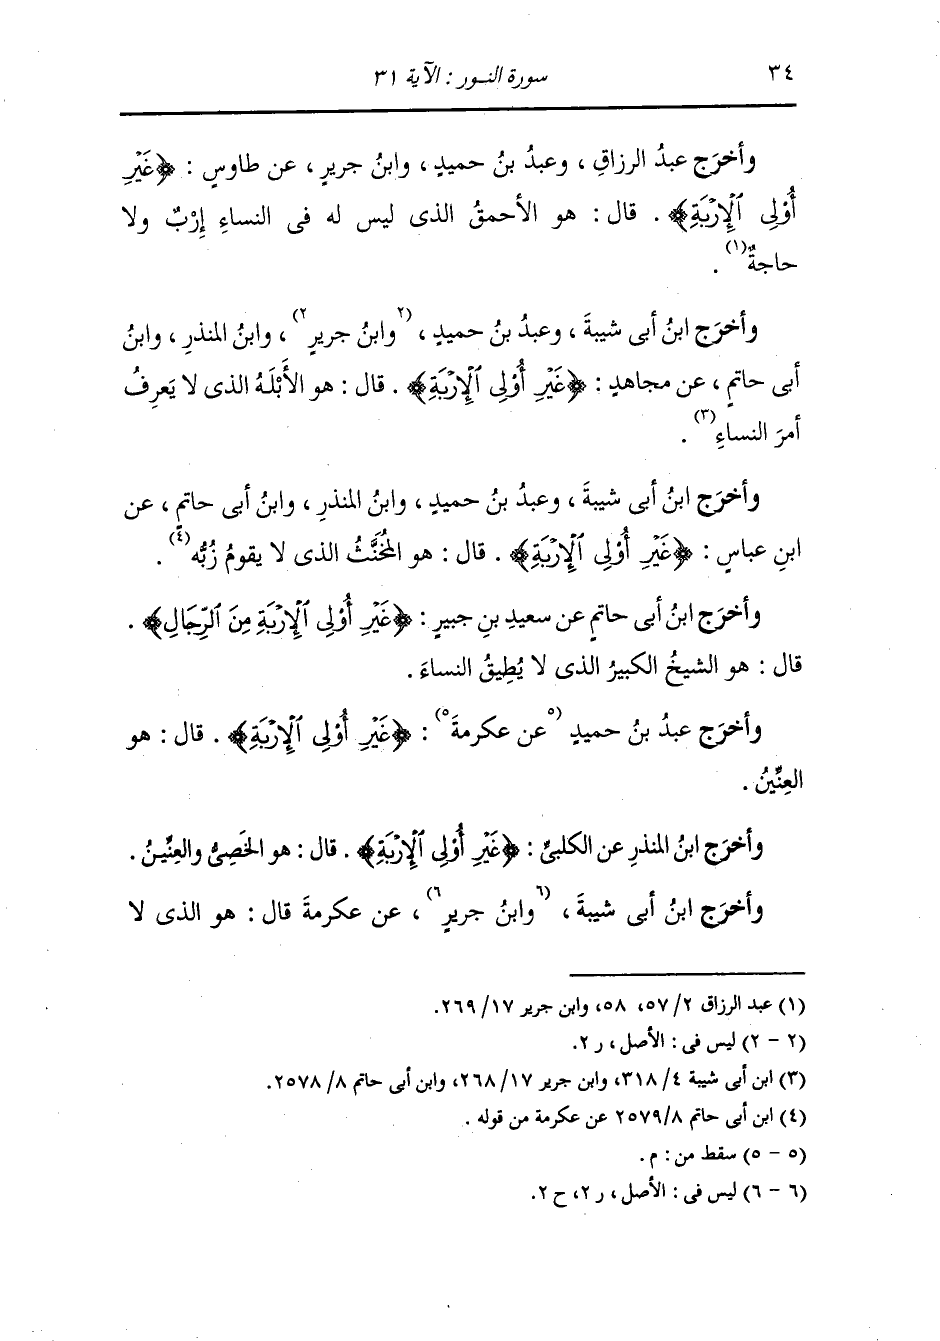 ٣٤
سورة النور : الآية ٣١
وأخرَج عبدُ الرزاقِ ، وعبدُ بنُ حميدٍ ، وابنُ جريرٍ ، عن طاوسٍ : ﴿غَيْرِ
أُوْلِى ٱلْإِرْبَةِ﴾ . قال : هو الأحمقُ الذى ليس له فى النساءِ إِرْبٌ ولا
حاجةٌ(١) .
وأخرَج ابنُ أبى شيبةَ ، وعبدُ بنُ حميدٍ ، (٢وابنُ جريرٍ٢) ، وابنُ المنذرِ ، وابنُ
أبى حاتمٍ ، عن مجاهدٍ : ﴿غَيْرِ أُوْلِى ٱلْإِرْبَةِ﴾ . قال : هو الأَبْلَهُ الذى لا يَعرِفُ
أمرَ النساءِ(٣) .
وأخرَج ابنُ أبى شيبةَ ، وعبدُ بنُ حميدٍ ، وابنُ المنذرِ ، وابنُ أبى حاتمٍ ، عن
ابنِ عباسٍ : ﴿غَيْرِ أُوْلِى ٱلْإِرْبَةِ﴾ . قال : هو المُخَنَّثُ الذى لا يقومُ زُبُّه(٤) .
وأخرَج ابنُ أبى حاتمٍ عن سعيدِ بنِ جبيرٍ : ﴿غَيْرِ أُوْلِى ٱلْإِرْبَةِ مِنَ ٱلرِّجَالِ﴾ .
قال : هو الشيخُ الكبيرُ الذى لا يُطِيقُ النساءَ .
وأخرَج عبدُ بنُ حميدٍ (٥عن عكرمةَ٥) : ﴿غَيْرِ أُوْلِى ٱلْإِرْبَةِ﴾ . قال : هو
العِنِّينُ .
وأخرَج ابنُ المنذرِ عن الكلبىِّ : ﴿غَيْرِ أُوْلِى ٱلْإِرْبَةِ﴾ . قال : هو الخَصِىُّ والعِنِّينُ .
وأخرَج ابنُ أبى شيبةَ ، (٦وابنُ جريرٍ٦) ، عن عكرمةَ قال : هو الذى لا
(١) عبد الرزاق ٢/ ٥٧، ٥٨، وابن جرير ١٧/ ٢٦٩.
(٢ - ٢) ليس فى : الأصل ، ر ٢.
(٣) ابن أبى شيبة ٤/ ٣١٨، وابن جرير ١٧/ ٢٦٨، وابن أبى حاتم ٨/ ٢٥٧٨.
(٤) ابن أبى حاتم ٢٥٧٩/٨ عن عكرمة من قوله .
(٥ - ٥) سقط من : م .
(٦ - ٦) ليس فى : الأصل ، ر ٢، ح ٢.